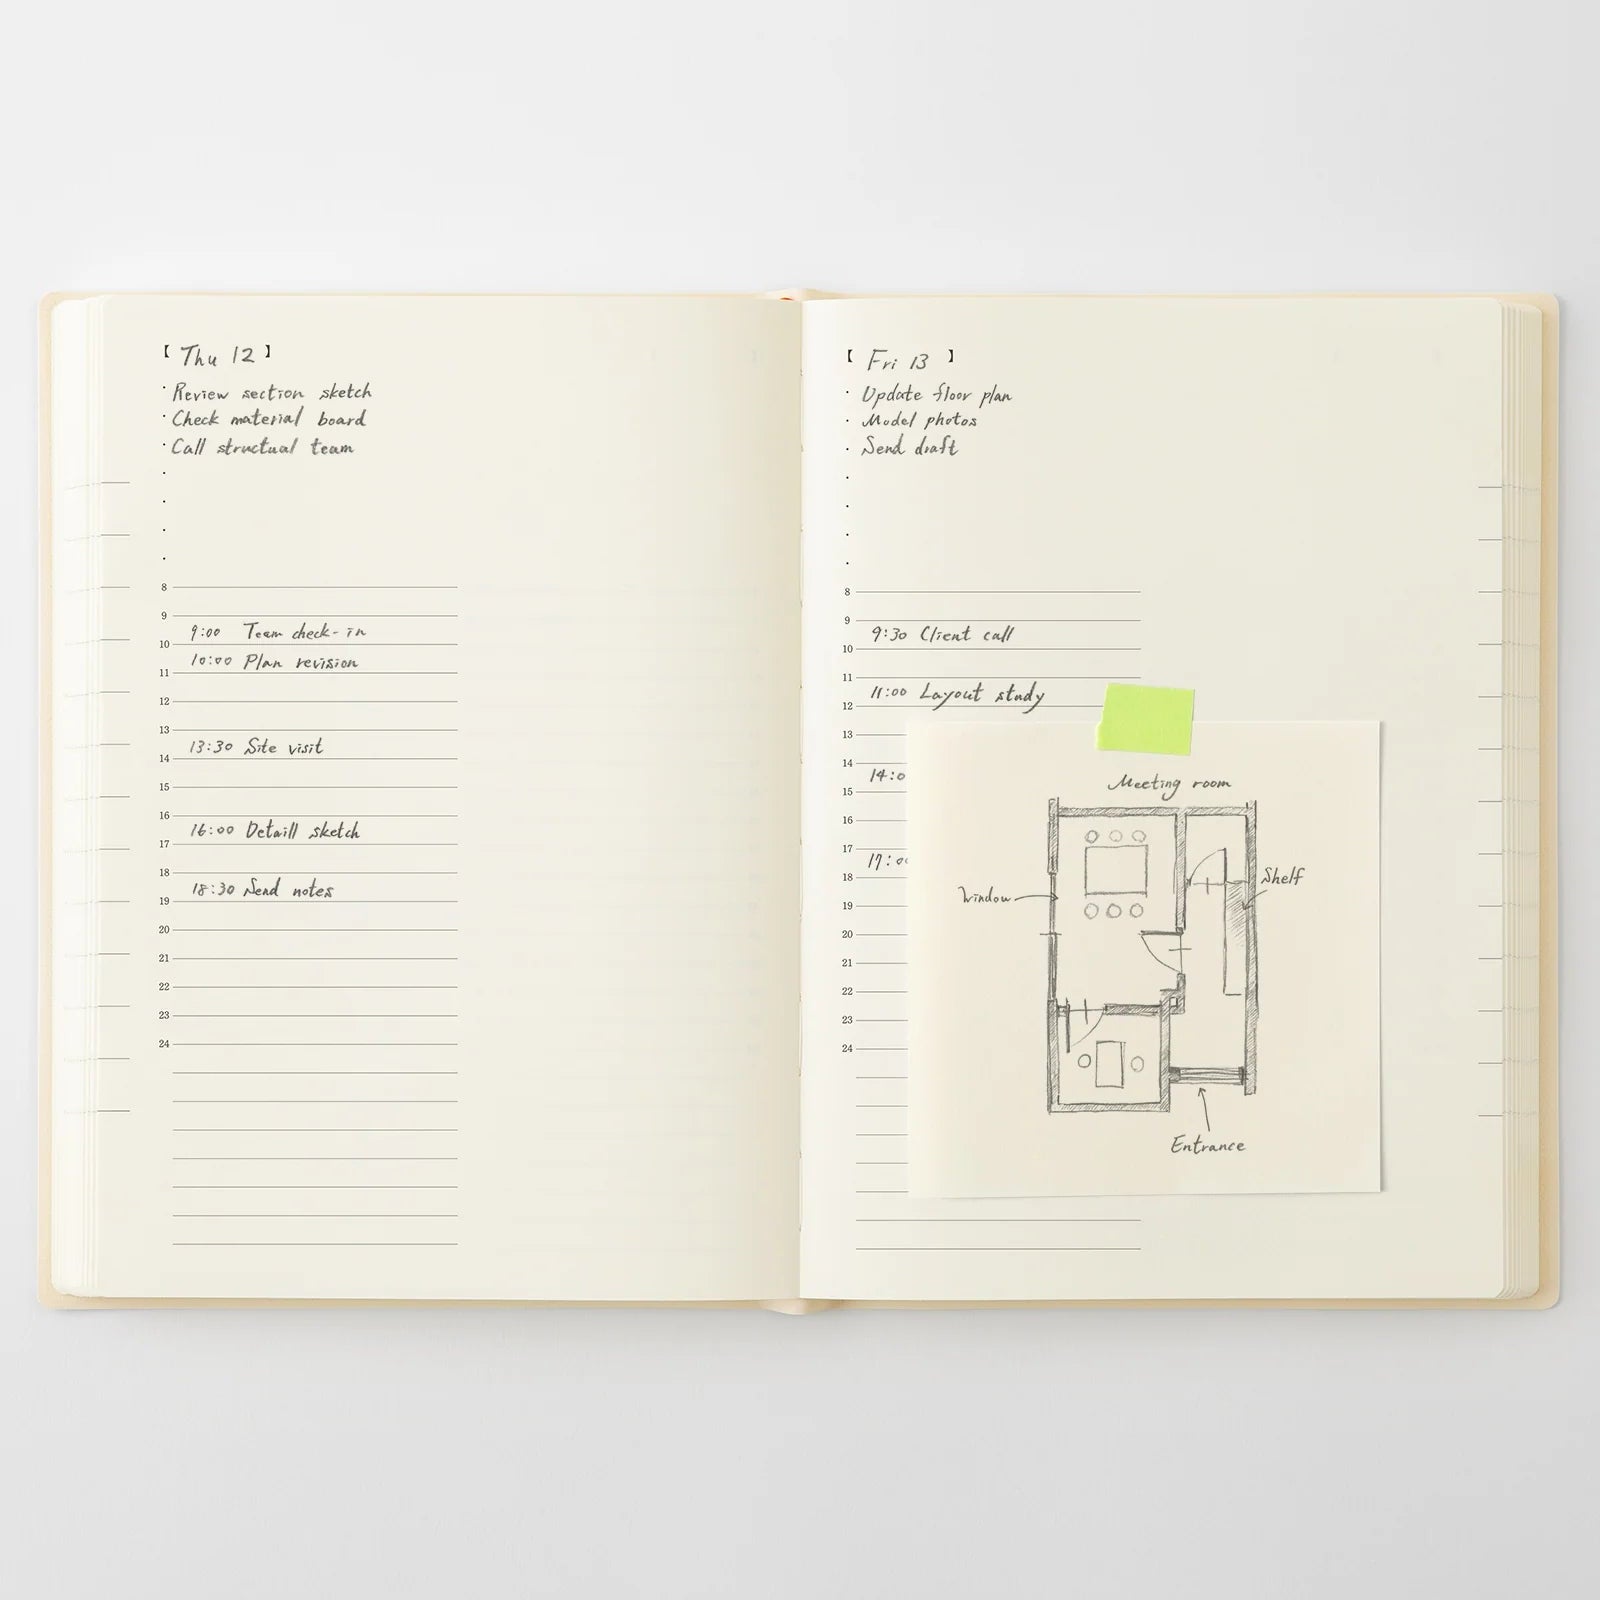 【 Thu 12 】
· Review section sketch
· Check material board
· Call structual team
8
9
9:00 Team check-in
10
10:00 Plan revision
11
12
13
13:30 Site visit
14
15
16
16:00 Detaill sketch
17
18
18:30 Send notes
19
20
21
22
23
24
【 Fri 13 】
· Update floor plan
· Model photos
· Send draft
8
9
9:30 Client call
10
11
11:00 Layout study
12
13
14
14:0
15
16
17
17:0
18
19
20
21
22
23
24
Meeting room
Shelf
Window
Entrance